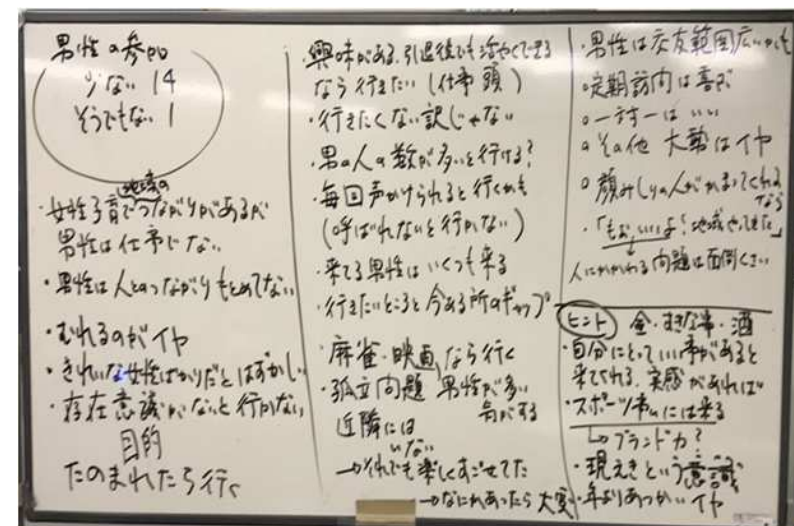 男性の参加
少ない 14
そうでもない 1
地域の
・女性子育てでつながりがあるが
男性は仕事でない
・男性は人とのつながりもとめてない
・むれるのがイヤ
・きれいな女性ばかりだとはずかしい
・存在意識がないと行かない
目的
たのまれたら行く
・興味がある、引退後でも活かくできる
なら行きたい(仕事 頭)
・行きたくない訳じゃない
・男の人の数が多いと行ける?
・毎回声かけられると行くかも
(呼ばれないと行かない)
・来てる男性はいくつも来る
・行きたいところと今ある所のギャップ
・麻雀・映画なら行く
・孤立問題 男性が多い
気がする
近隣には
いない
→それでも楽しくすごせてた
→なにかあったら大変
・男性は交友範囲広いかも
○定期訪問は喜ぶ
○一対一はいい
○その他 大勢はイヤ
○顔みしりの人がかまってくれる
なら
・「もおいいよ!地域やってきた」
人にかかわる問題は面倒くさい
ヒント 金・すきな事・酒
・自分にとっていい事があると
来てくれる、実感があれば
・スポーツ事には来る
↳ブランド力?
・現えきという意識
・年よりあつかいイヤ